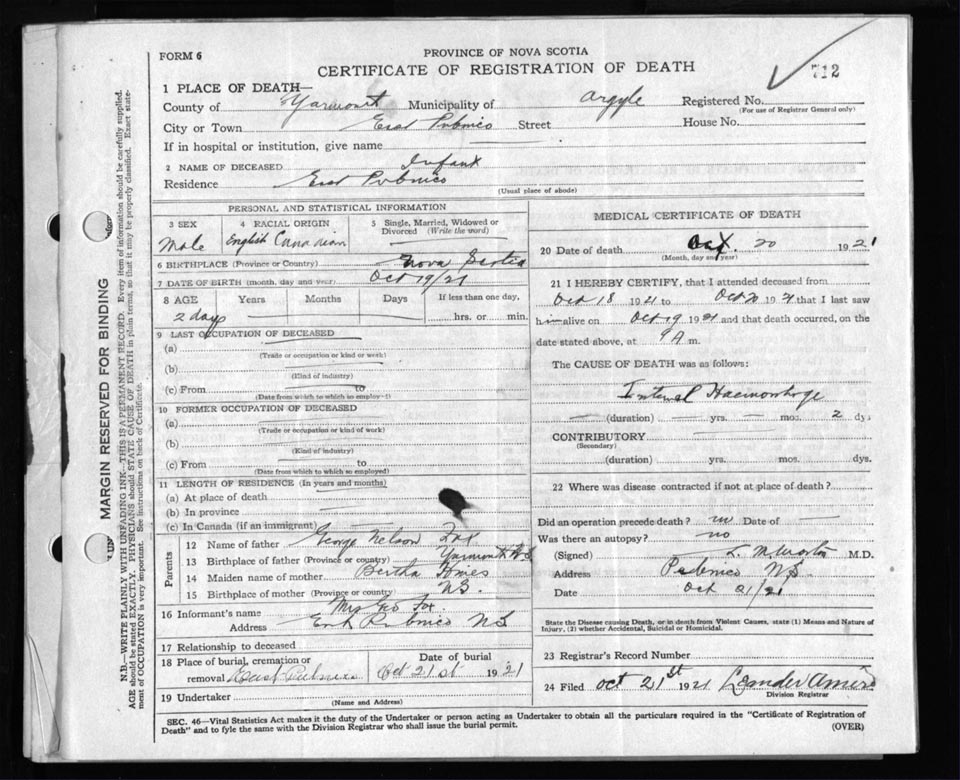 FORM 6
PROVINCE OF NOVA SCOTIA
CERTIFICATE OF REGISTRATION OF DEATH
712
1 PLACE OF DEATH—
County of Yarmouth Municipality of Argyle Registered No.
(For use of Registrar General only)
City or Town East Pubnico Street House No.
If in hospital or institution, give name
2 NAME OF DECEASED Infant
Residence East Pubnico
(Usual place of abode)
PERSONAL AND STATISTICAL INFORMATION
3 SEX
Male
4 RACIAL ORIGIN
English Canadian
5 Single, Married, Widowed or
Divorced (Write the word)
6 BIRTHPLACE (Province or Country) Nova Scotia
7 DATE OF BIRTH (month, day and year) Oct 19/21
8 AGE Years Months Days If less than one day,
2 days hrs. or min.
9 LAST OCCUPATION OF DECEASED
(a)
(Trade or occupation or kind or work)
(b)
(Kind of industry)
(c) From to
(Date from which to which so employed)
10 FORMER OCCUPATION OF DECEASED
(a)
(Trade or occupation or kind of work)
(b)
(Kind of industry)
(c) From to
(Date from which to which so employed)
11 LENGTH OF RESIDENCE (In years and months)
(a) At place of death
(b) In province
(c) In Canada (if an immigrant)
Parents
12 Name of father George Nelson Fox
13 Birthplace of father (Province or country) Yarmouth N.S
14 Maiden name of mother Bertha
15 Birthplace of mother (Province or country) N.S.
16 Informant's name Mrs Geo Fox.
Address East Pubnico N S
17 Relationship to deceased
18 Place of burial, cremation or
removal East Pubnico
Date of burial
Oct 21st 1921
19 Undertaker
(Name and Address)
MEDICAL CERTIFICATE OF DEATH
20 Date of death Oct. 20 1921
(Month, day and year)
21 I HEREBY CERTIFY, that I attended deceased from
Oct 18 1921 to Oct 20 1921 that I last saw
him alive on Oct 19 1921 and that death occurred, on the
date stated above, at 9 A m.
The CAUSE OF DEATH was as follows:
Internal Haemorrhage
(duration) — yrs. — mos. 2 dys.
CONTRIBUTORY
(Secondary)
(duration) yrs. mos. dys.
22 Where was disease contracted if not at place of death?
Did an operation precede death? no Date of —
Was there an autopsy? no
(Signed) M.D.
Address Pubnico N.S.
Date Oct 21/21
State the Disease causing Death, or in death from Violent Causes, state (1) Means and Nature of
Injury, (2) whether Accidental, Suicidal or Homicidal.
23 Registrar's Record Number
24 Filed Oct 21st 1921 Leander Amero
Division Registrar
SEC. 46—Vital Statistics Act makes it the duty of the Undertaker or person acting as Undertaker to obtain all the particulars required in the "Certificate of Registration of
Death" and to fyle the same with the Division Registrar who shall issue the burial permit.
(OVER)
MARGIN RESERVED FOR BINDING
N.B.—WRITE PLAINLY WITH UNFADING INK—THIS IS A PERMANENT RECORD. Every item of information should be carefully supplied.
AGE should be stated EXACTLY. PHYSICIANS should STATE CAUSE OF DEATH in plain terms, so that it may be properly classified. Exact state-
ment of OCCUPATION is very important. See instructions on back of Certificate.